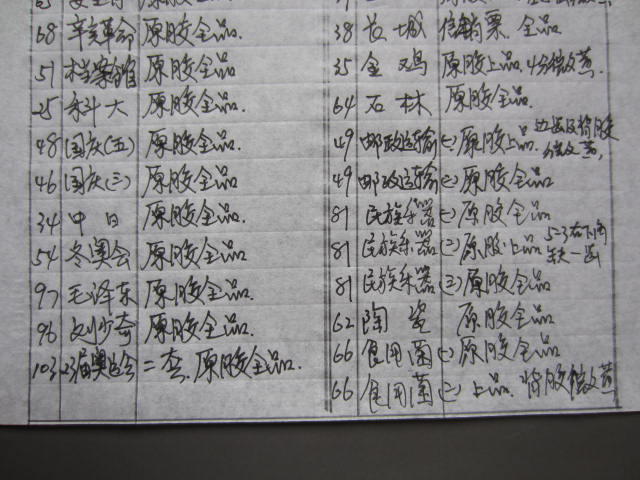 68 辛亥革命 原胶全品.
51 档案馆 原胶全品.
25 科大 原胶全品.
48 国庆(五) 原胶全品.
46 国庆(三) 原胶全品
34 中日 原胶全品
54 冬奥会 原胶全品
97 毛泽东 原胶全品.
96 刘少奇 原胶全品.
103 23届奥运会 二套. 原胶全品.
38 长城 信销票. 全品
35 金鸡 原胶上品. 4分微黄.
64 石林 原胶全品.
49 邮政运输(一) 原胶上品.
微黄.
49 邮政运输(二) 原胶全品
81 民族乐器(一) 原胶全品
81 民族乐器(二) 原胶上品 5-3右下角
缺一齿
81 民族乐器(三) 原胶全品
62 陶瓷 原胶全品
66 食用菌(一) 原胶全品
66 食用菌(二) 上品. 背胶微黄